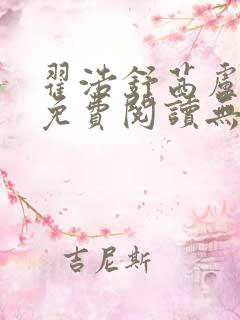 翟浩舒茜盧
免費閱讀無
吉尼斯